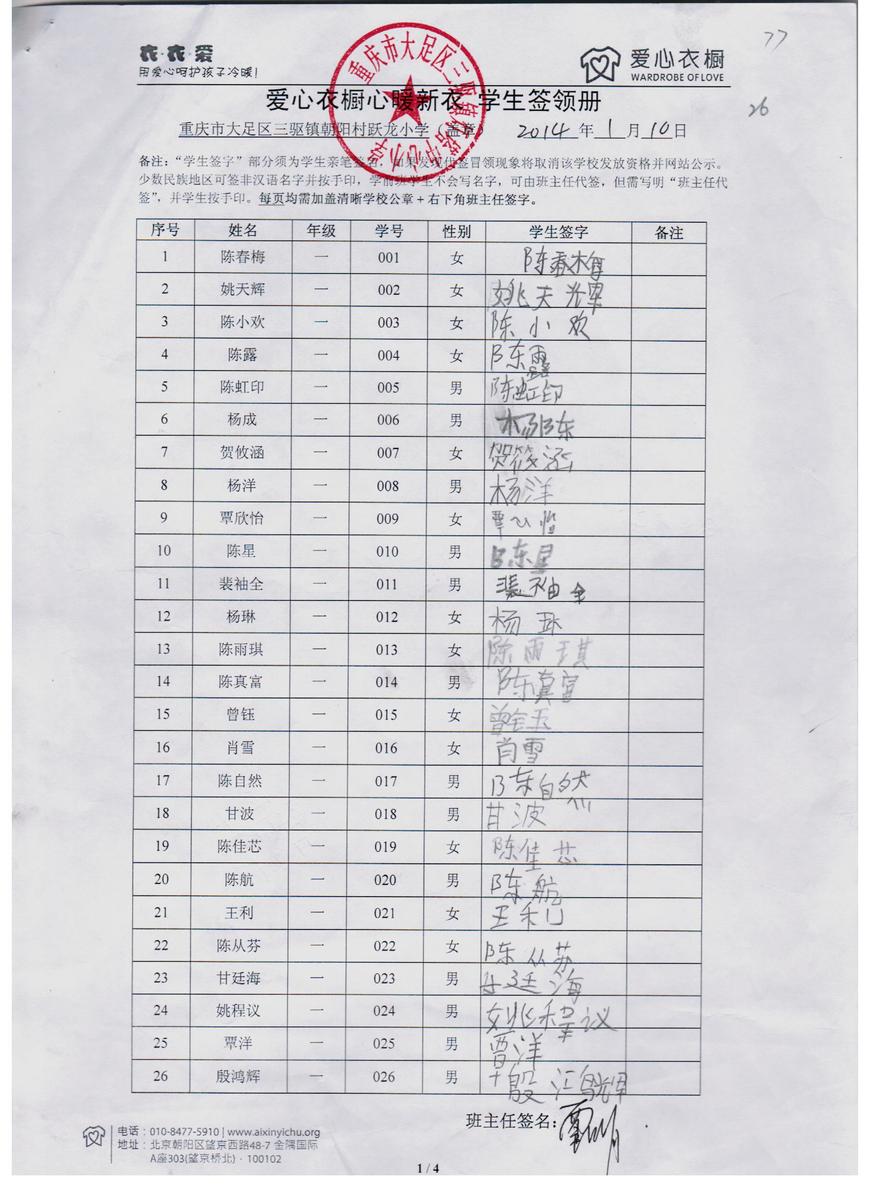 衣·衣·爱
用爱心呵护孩子冷暖!
爱心衣橱
WARDROBE OF LOVE
77
26
爱心衣橱心暖新衣 学生签领册
重庆市大足区三驱镇朝阳村跃龙小学（盖章） 2014 年 1 月 10 日
备注：“学生签字”部分须为学生亲笔签名，如果发现代签冒领现象将取消该学校发放资格并网站公示。
少数民族地区可签非汉语名字并按手印，学前班学生不会写名字，可由班主任代签，但需写明“班主任代
签”，并学生按手印。每页均需加盖清晰学校公章+右下角班主任签字。
序号 姓名 年级 学号 性别 学生签字 备注
1 陈春梅 一 001 女 陈春梅
2 姚天辉 一 002 女 姚天辉
3 陈小欢 一 003 女 陈小欢
4 陈露 一 004 女 陈露
5 陈虹印 一 005 男 陈虹印
6 杨成 一 006 男 杨陈
7 贺攸涵 一 007 女 贺筱涵
8 杨洋 一 008 男 杨洋
9 覃欣怡 一 009 女 覃
10 陈星 一 010 男 陈星
11 裴袖全 一 011 男 裴袖全
12 杨琳 一 012 女 杨
13 陈雨琪 一 013 女 陈雨琪
14 陈真富 一 014 男 陈真富
15 曾钰 一 015 女 曾钰
16 肖雪 一 016 女 肖雪
17 陈自然 一 017 男 陈自然
18 甘波 一 018 男 甘波
19 陈佳芯 一 019 女 陈佳芯
20 陈航 一 020 男 陈航
21 王利 一 021 女 王利
22 陈从芬 一 022 女 陈从苏
23 甘廷海 一 023 男 甘廷海
24 姚程议 一 024 男 姚程议
25 覃洋 一 025 男 覃洋
26 殷鸿辉 一 026 男 殷鸿辉
班主任签名：
电话：010-8477-5910 | www.aixinyichu.org
地址：北京朝阳区望京西路48-7 金隅国际
A座303(望京桥北)·100102
1 / 4